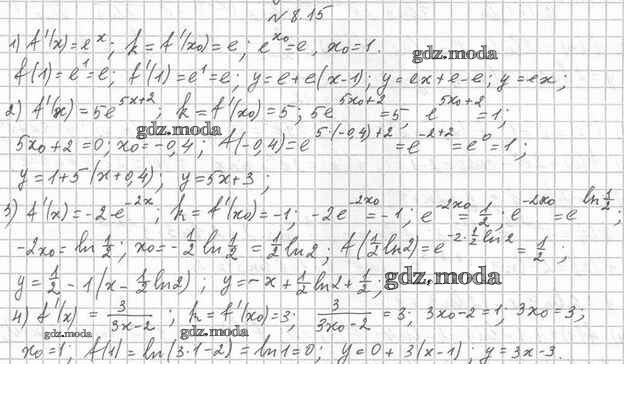 № 8.15
1) f'(x)=e^x; k=f'(x₀)=e; e^{x₀}=e, x₀=1.
gdz.moda
f(1)=e¹=e; f'(1)=e¹=e; y=e+e(x-1); y=ex+e-e; y=ex;
2) f'(x)=5e^{5x+2}; k=f'(x₀)=5; 5e^{5x₀+2}=5, e^{5x₀+2}=1;
gdz.moda
5x₀+2=0; x₀=-0,4; f(-0,4)=e^{5·(-0,4)+2}=e^{-2+2}=e⁰=1;
y=1+5(x+0,4); y=5x+3;
3) f'(x)=-2·e^{-2x}; k=f'(x₀)=-1; -2e^{-2x₀}=-1; e^{-2x₀}=1/2; e^{-2x₀}=e^{ln 1/2};
-2x₀=ln 1/2; x₀=-1/2 ln 1/2=1/2 ln2; f(1/2 ln2)=e^{-2·1/2 ln2}=1/2;
y=1/2-1(x-1/2 ln2); y=-x+1/2 ln2+1/2;
gdz.moda
4) f'(x)=3/(3x-2); k=f'(x₀)=3; 3/(3x₀-2)=3; 3x₀-2=1; 3x₀=3;
gdz.moda gdz.moda
x₀=1; f(1)=ln(3·1-2)=ln1=0; y=0+3(x-1); y=3x-3.